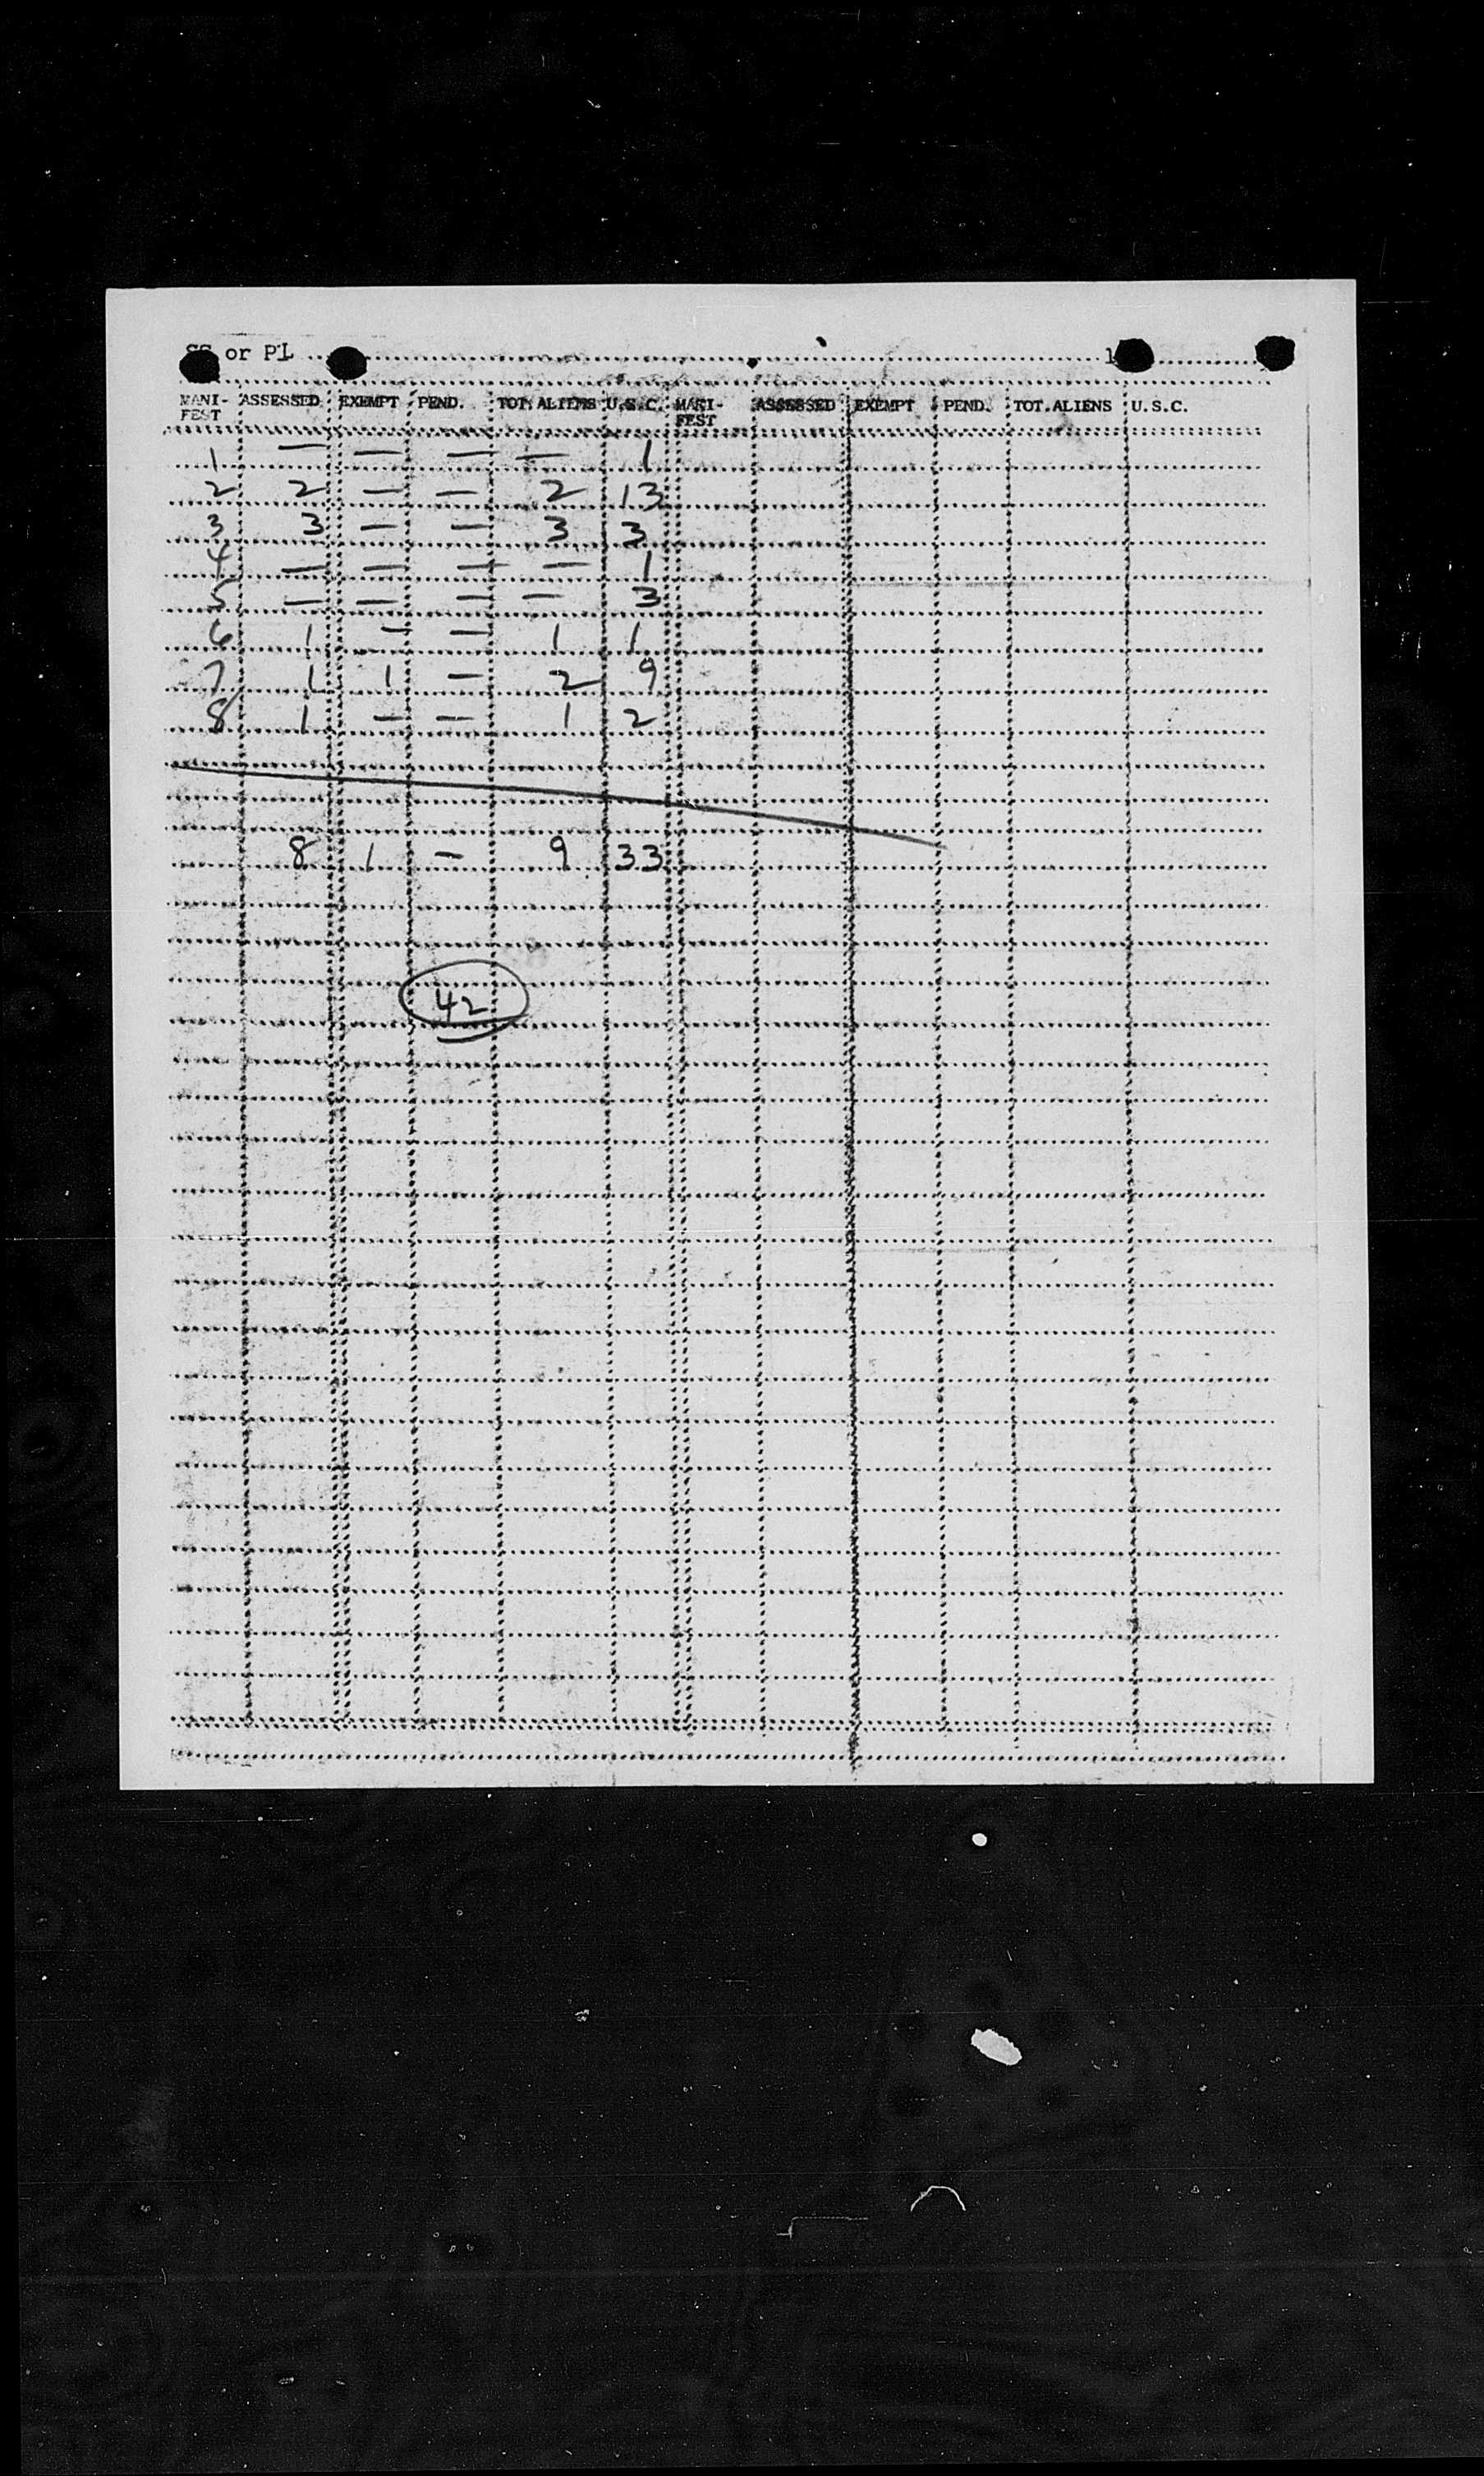 SS or PL
MANI-FEST ASSESSED EXEMPT PEND. TOT. ALIENS U.S.C. MANI-FEST ASSESSED EXEMPT PEND. TOT. ALIENS U.S.C.
1 — — — — 1
2 2 — — 2 13
3 3 — — 3 3
4 — — — — 1
5 — — — — 3
6 1 — — 1 1
7 1 1 — 2 9
8 1 — — 1 2
8 1 — 9 33
42